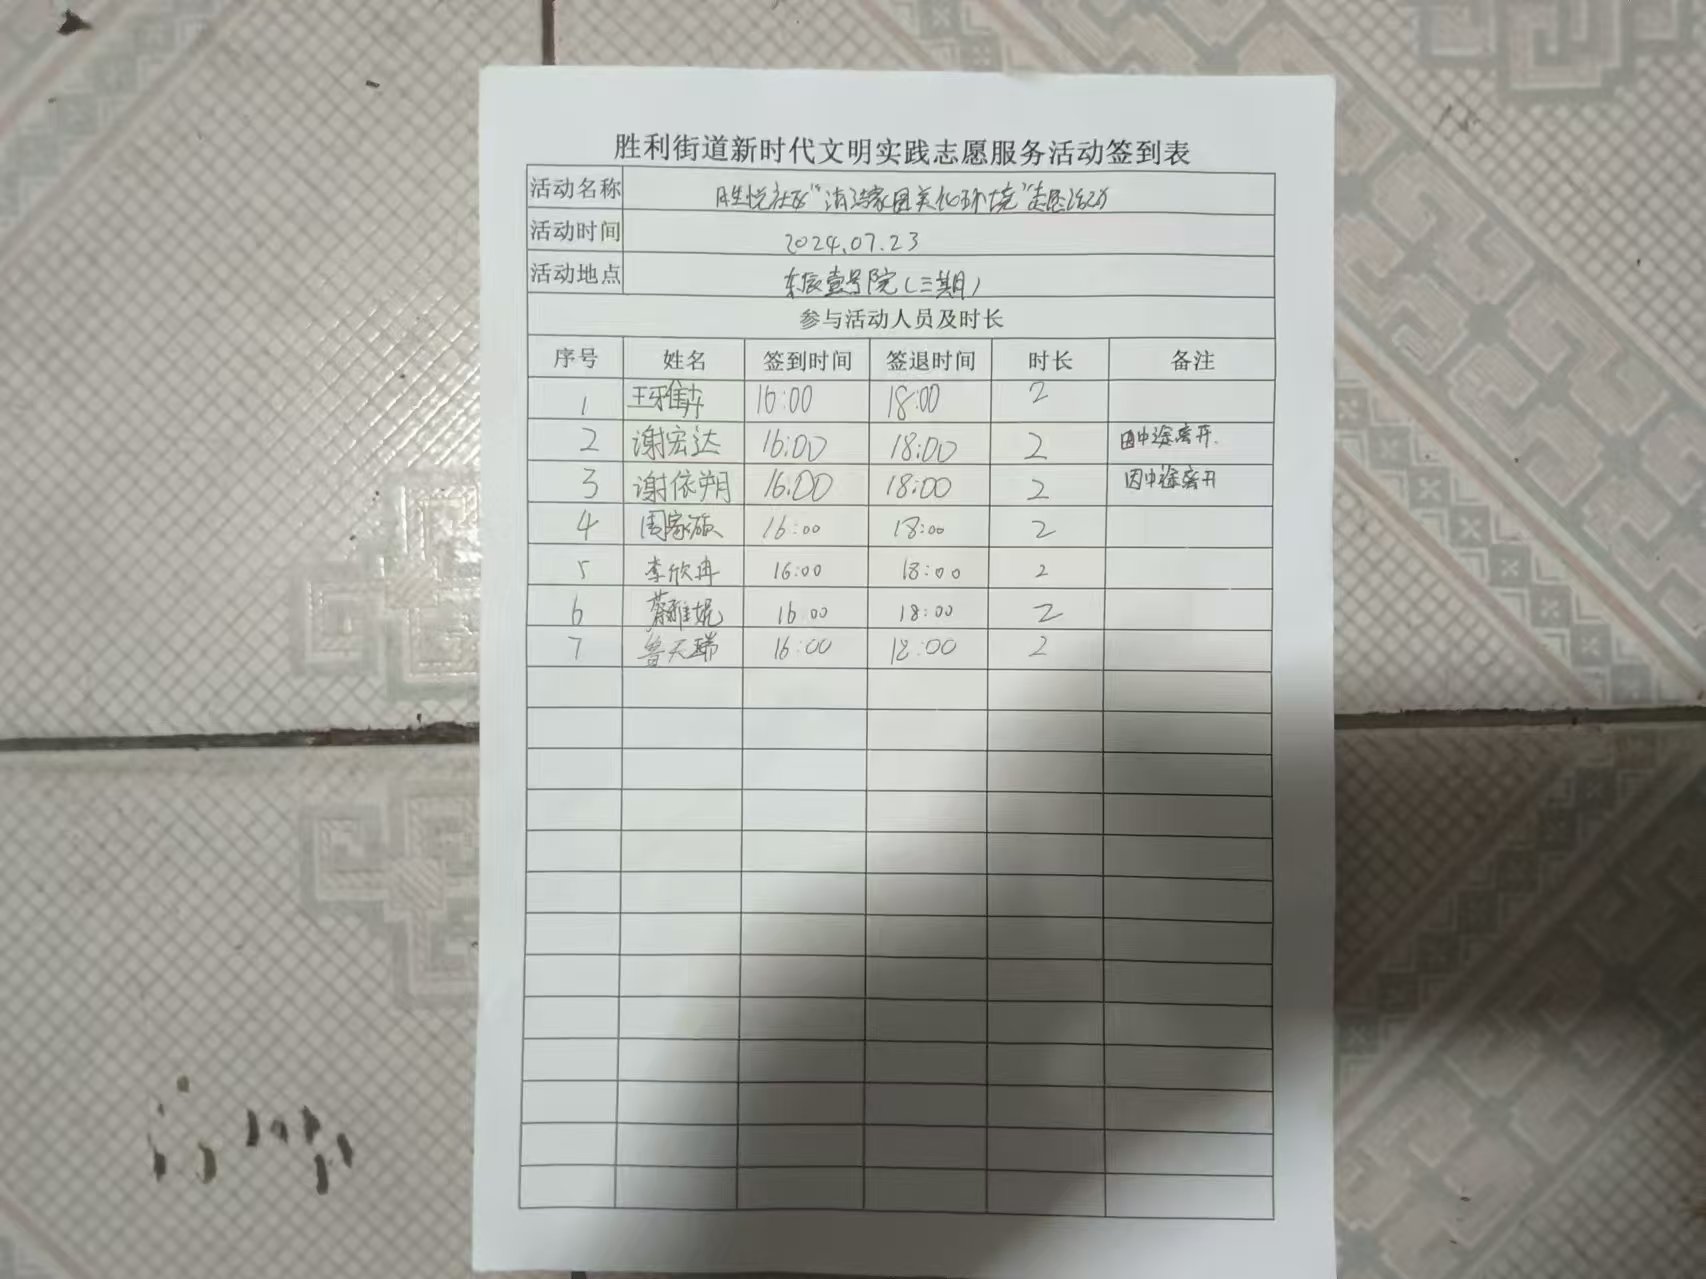 胜利街道新时代文明实践志愿服务活动签到表
活动名称 胜悦社区“清洁家园美化环境”志愿活动
活动时间 2024.07.23
活动地点 东辰壹号院(三期)
参与活动人员及时长
序号 姓名 签到时间 签退时间 时长 备注
1 王雅卉 16:00 18:00 2
2 谢宏达 16:00 18:00 2 因中途离开.
3 谢依朔 16:00 18:00 2 因中途离开
4 周家硕 16:00 18:00 2
5 李欣冉 16:00 18:00 2
6 蔡雅妮 16:00 18:00 2
7 鲁天瑞 16:00 18:00 2